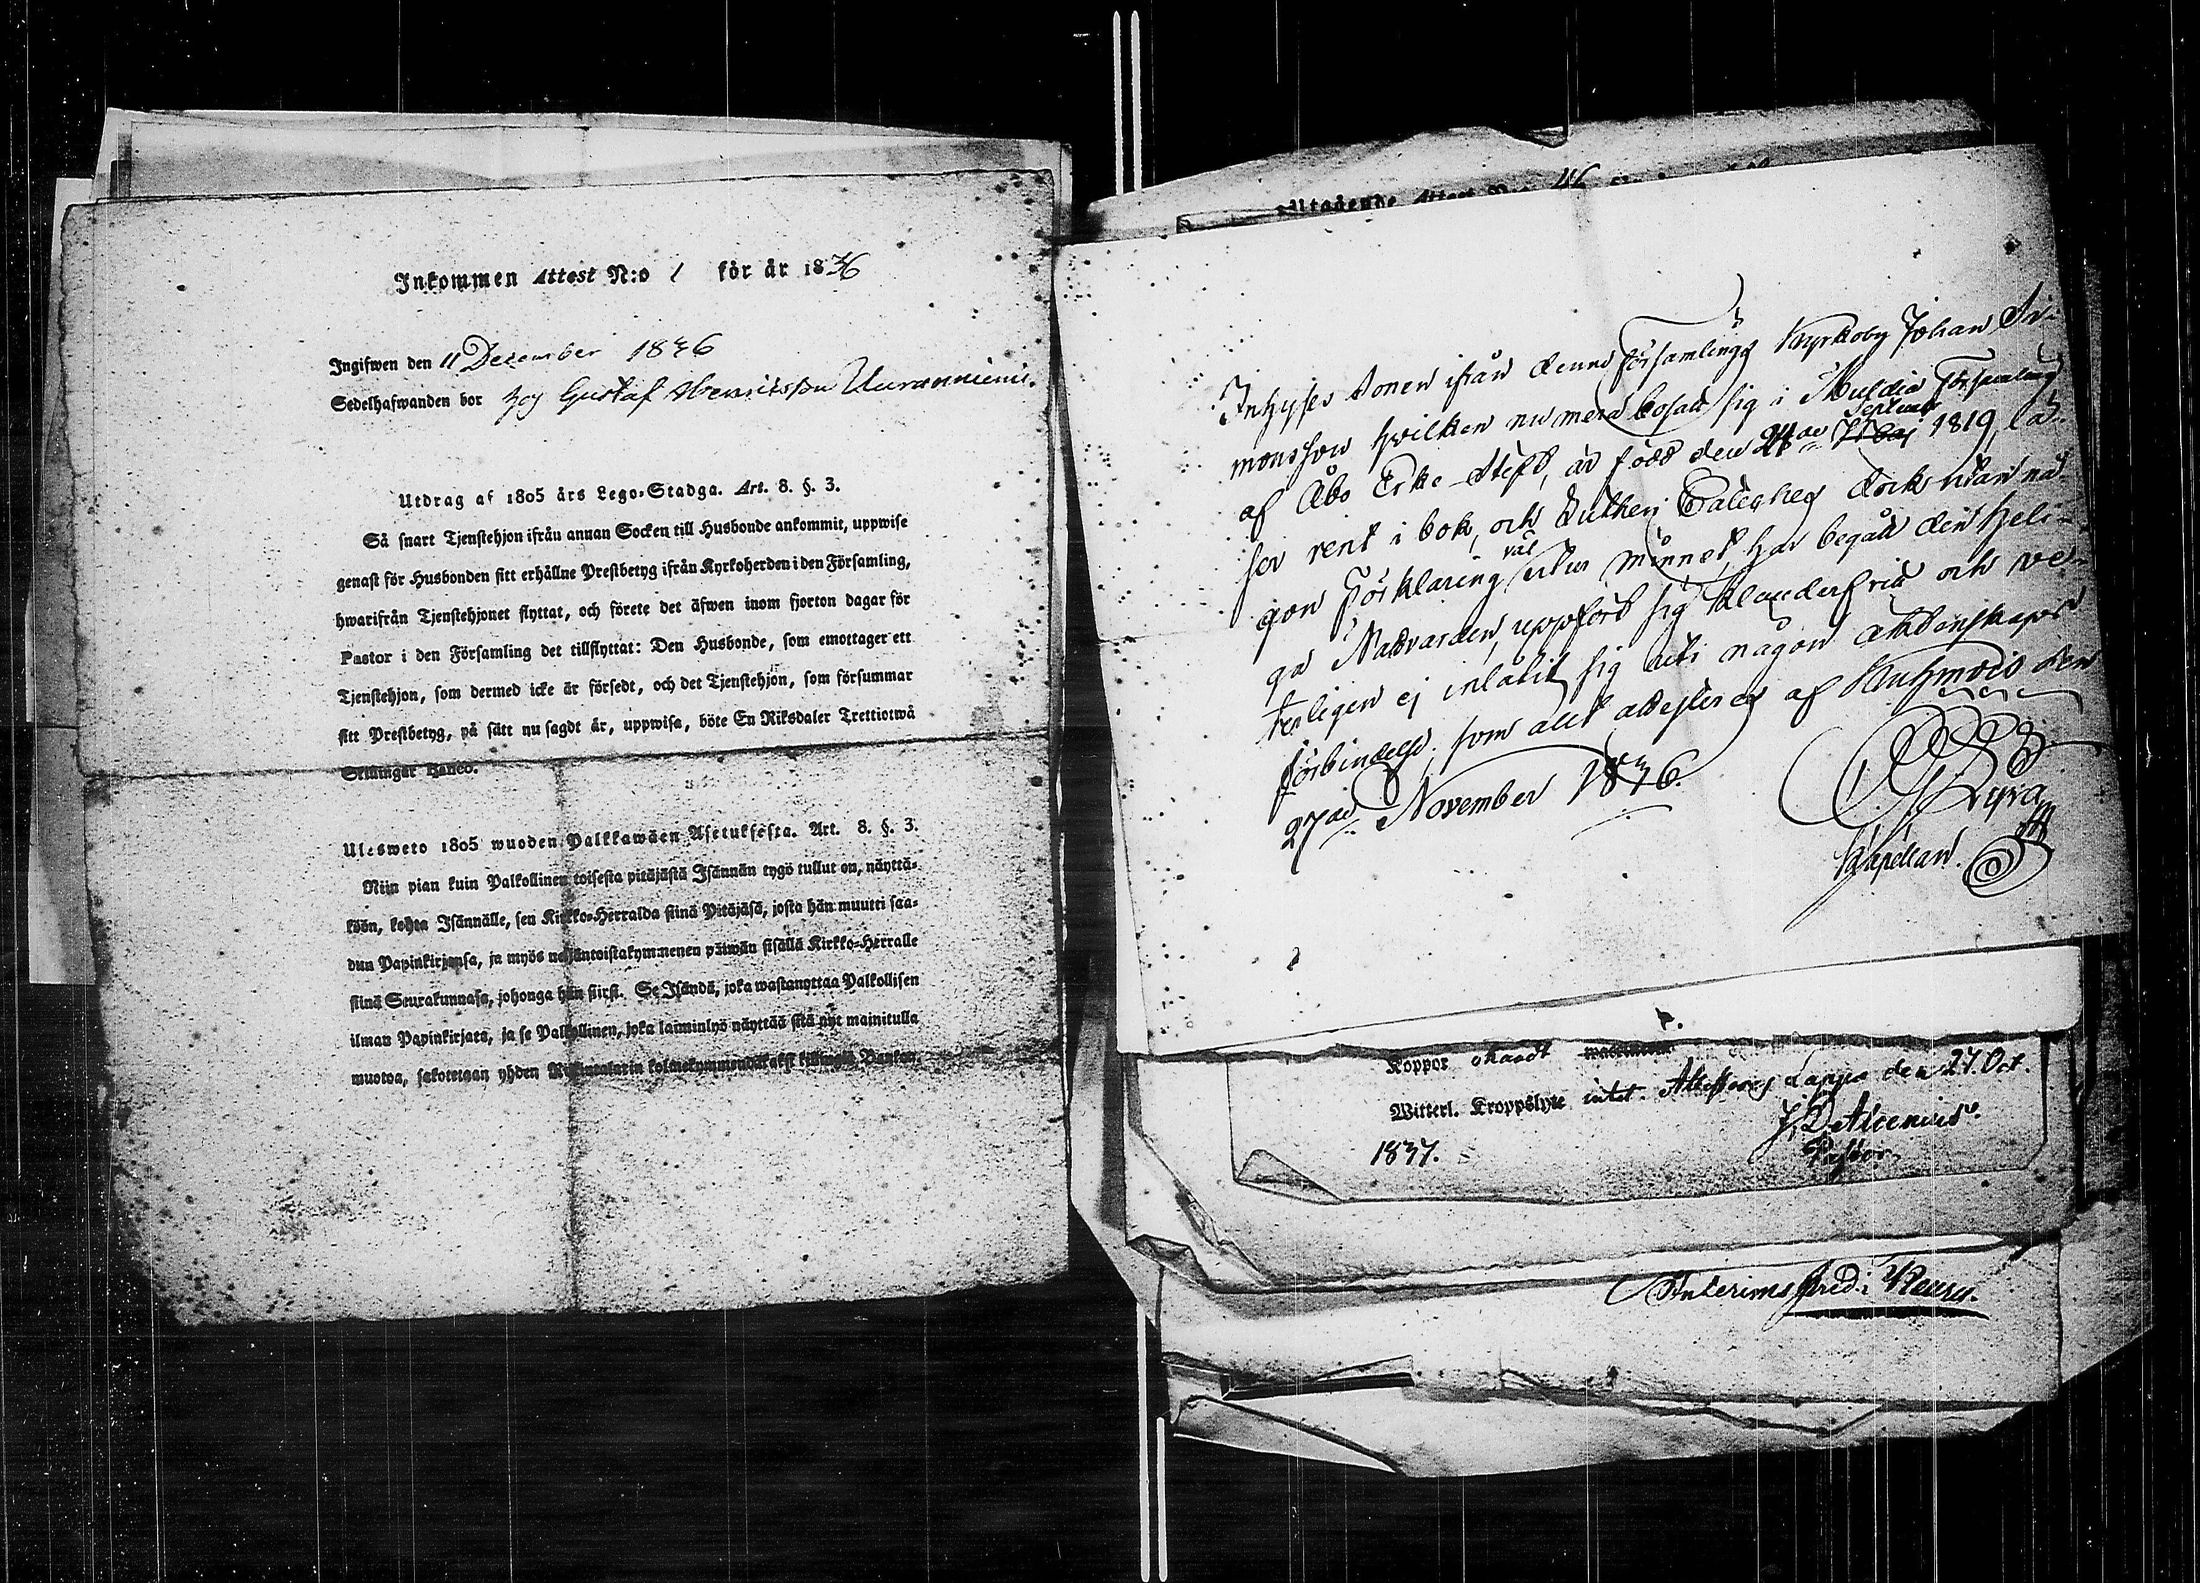 Inkommen Attest N:o 1 för år 1836
Ingifwen den 11 December 1836
Sedelhafwanden bor hos Gustaf Henricsson Uuranniemi.
Utdrag af 1805 års Lego-Stadga. Art. 8. §. 3.
Så snart Tjenstehjon ifrån annan Socken till Husbonde ankommit, uppwise
genast för Husbonden sitt erhållne Prestbetyg ifrån Kyrkoherden i den Församling,
hwarifrån Tjenstehjonet flyttat, och förete det äfwen inom fjorton dagar för
Pastor i den Församling det tillflyttat: Den Husbonde, som emottager ett
Tjenstehjon, som dermed icke är försedt, och det Tjenstehjon, som försummar
sitt Prestbetyg, på sätt nu sagdt är, uppwisa, böte En Riksdaler Trettiotwå
Schillingar Banco.
Ulesweto 1805 wuoden Palkkawäen Asetuksesta. Art. 8. §. 3.
Niin pian kuin Palkollinen toisesta pitäjästä Isännän tygö tullut on, näyttä-
köön, kohta Isännälle, sen Kirkko-Herralda siinä Pitäjäsä, josta hän muutti saa-
dun Papinkirjansa, ja myös neljäntoistakymmenen päiwän sisällä Kirkko-Herralle
siinä Seurakunnasa, johonga hän siirsi. Se Isändä, joka wastanottaa Palkollisen
ilman Papinkirjata, ja se Palkollinen, joka laiminlyö näyttää sitä nyt mainitulla
muotoa, sakotetaan yhden Riksintalarin kolmekymmendäkaksi killingiä Bankon.
Utgående Attest N:o 46
Inhyses Sonen ifrån denna församlings Kyrkoby Johan Si-
monsson hvilken nu mera bosatt sig i Muldia Församling
Septemb
af Åbo Erke-Stift, är född den 24de Maj 1819, lä-
ser rent i bok, och Lutheri Cateches dock utan nå-
väl
gon Förklaring utur minnet, har begått den heli-
ga Nattvarden, uppfört sig klanderfritt och ve-
terligen ej inlåtit sig uti någon äktenskaps
förbindelse; som allt attesteres af Kuhmois den
27de November 1836.
Lyra
Kapellan.
Koppor skaadt
Witterl. Kroppslyte intet. Attesteras Lappo den 27. Oct.
1837.
Pastor
Interims pred. i Keuru.